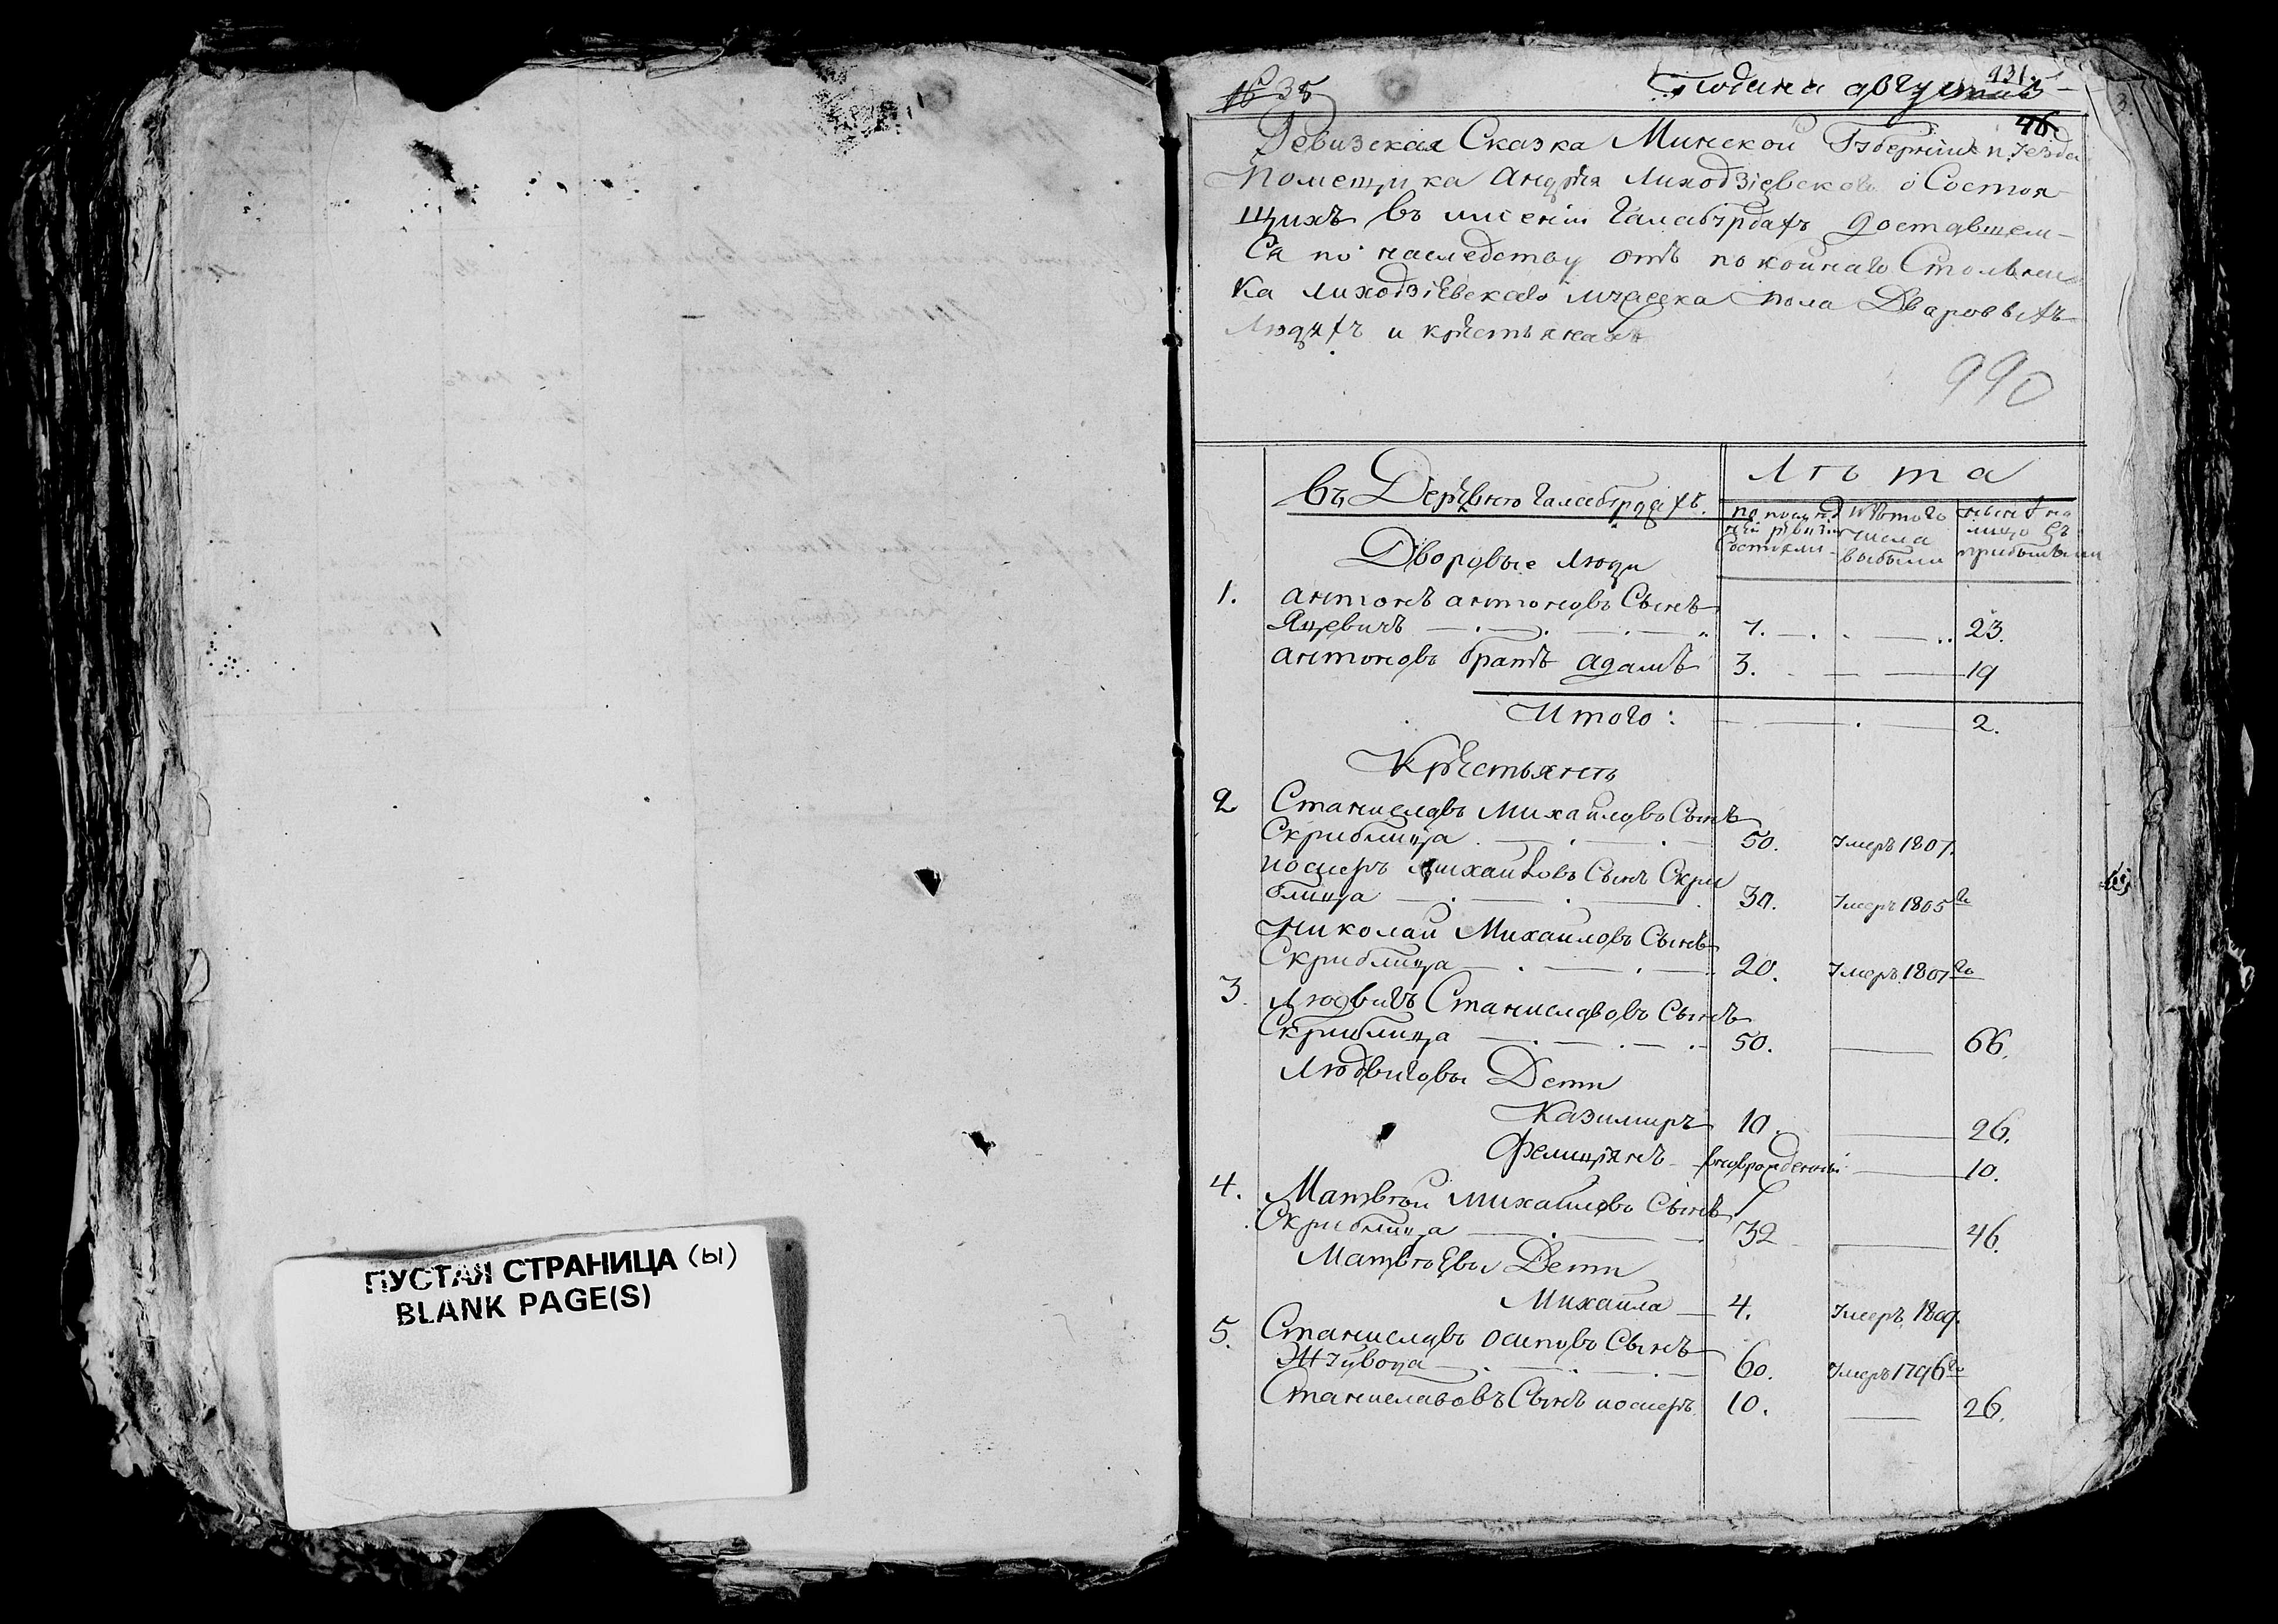 ПУСТАЯ СТРАНИЦА (ы)
BLANK PAGE(S)
№ 35
Подана августа
931.
46
3.
Ревизская Сказка Минской Губернии и уезда
Помещика Андрея Лиходзіевского о Состоя
щихъ въ имении Галабурдахъ доставшем
Ся по наследству отъ покойнаго Стольни
ка Лиходзіевскаго мужеска пола Дваровыхъ
Людяхъ и крестьянахъ
990
въ Деревню Галабурдахъ.
Лѣта
по послед
ней ревизіи
Состояли
изъ того
числа
выбыли
ныне на
лицо съ
прибылыми
Дворовые Люди
1. Антонъ антоновъ Сынъ
Яцевичъ 7. 23.
антоновъ братъ адамъ 3. 19
Итого: 2.
Крестьянѣ
2 Станиславъ Михайловъ Сынъ
Скриблица 50. Умеръ 1807.
иосиеръ михайловъ Сынъ Скри
блица 30. Умеръ 1805го
Николай Михайловъ Сынъ
Скриблица 20. Умеръ 1807го
3. Людвигъ Станиславовъ Сынъ
Скриблица 50. 66.
Людвиговы Дети
Казимиръ 10. 26.
Фелиціянъ новорожденный 10.
4. Матвѣй Михайловъ Сынъ
Скриблица 32 46.
Матвѣевы Дети
Михайла 4. Умеръ 1809.
5. Станиславъ осиповъ Сынъ
60. Умеръ 1796го
Станиславовъ Сынъ иосиеръ 10. 26.